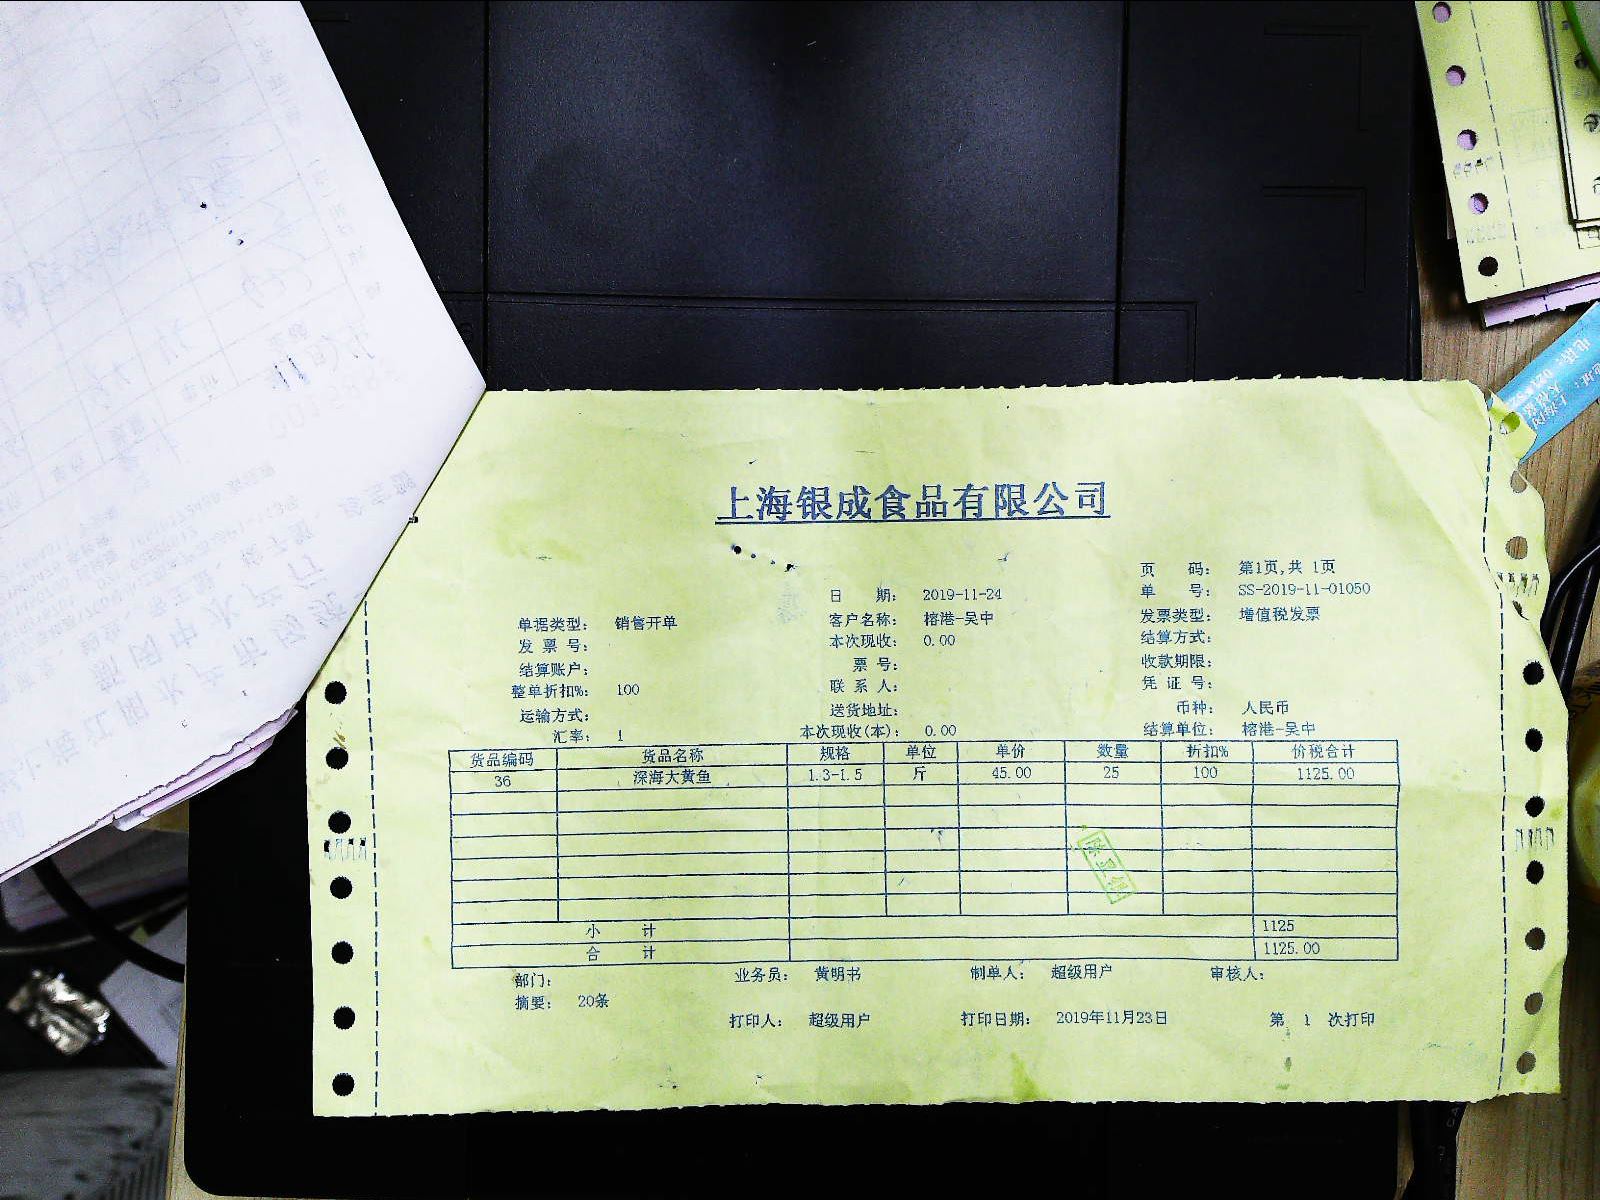 上海银成食品有限公司
页 码： 第1页,共 1页
日 期： 2019-11-24 单 号： SS-2019-11-01050
单据类型： 销售开单 客户名称： 榕港-吴中 发票类型： 增值税发票
发 票 号： 本次现收： 0.00 结算方式：
结算账户： 票 号： 收款期限：
整单折扣%： 100 联 系 人： 凭 证 号：
运输方式： 送货地址： 币种： 人民币
汇率： 1 本次现收(本)： 0.00 结算单位： 榕港-吴中
货品编码 货品名称 规格 单位 单价 数量 折扣% 价税合计
36 深海大黄鱼 1.3-1.5 斤 45.00 25 100 1125.00
小 计 1125
合 计 1125.00
部门： 业务员： 黄明书 制单人： 超级用户 审核人：
摘要： 20条
打印人： 超级用户 打印日期： 2019年11月23日 第 1 次打印